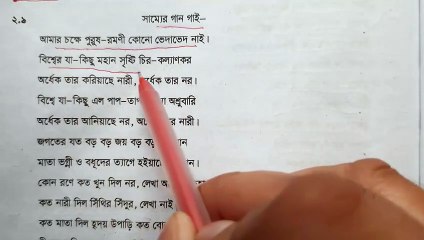 ২.৯ সাম্যের গান গাই–
আমার চক্ষে পুরুষ-রমণী কোনো ভেদাভেদ নাই।
বিশ্বের যা-কিছু মহান সৃষ্টি চির-কল্যাণকর
অর্ধেক তার করিয়াছে নারী, অর্ধেক তার নর।
বিশ্বে যা-কিছু এল পাপ-তাপ অশ্রুবারি
অর্ধেক তার আনিয়াছে নর, নারী।
জগতের যত বড় বড় জয় বড় বড়
মাতা ভগ্নী ও বধূদের ত্যাগে হইয়াছে
কোন রণে কত খুন দিল নর, লেখা আছে
কত নারী দিল সিঁথির সিঁদুর, লেখা নাই
কত মাতা দিল হৃদয় উপাড়ি কত